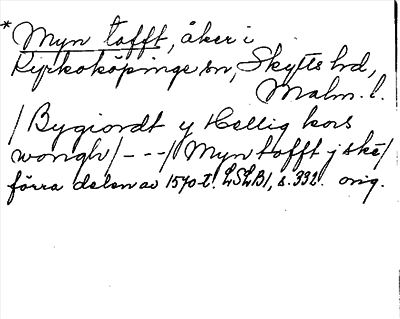 * Myn tofft, åker i
Kyrkoköpinge sn, Skytts hd,
Malm. l.
/ Bygiordt y Hellig kors
wongh / - - - / Myn tofft j ske /
förra delen av 1570-t. LSLB1, s. 332. orig.